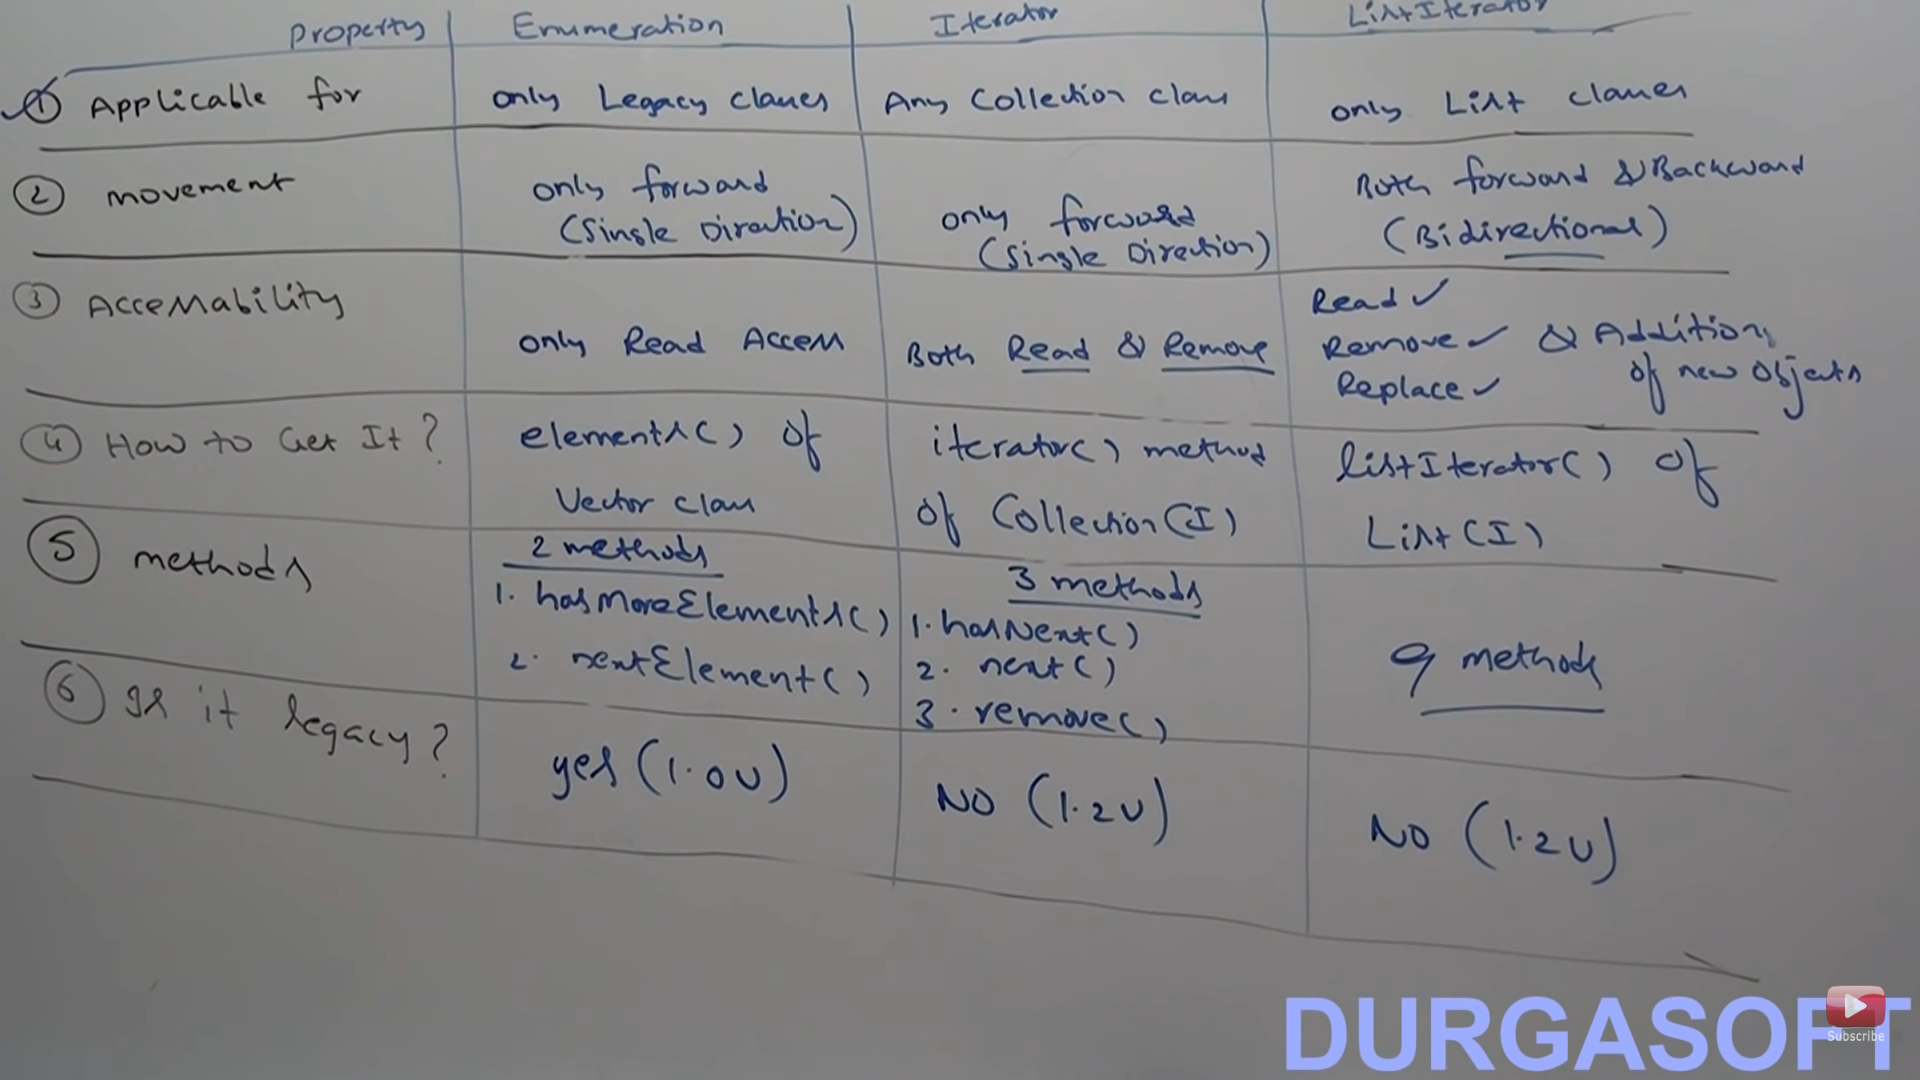 Property Enumeration Iterator ListIterator
① Applicable for only Legacy classes Any Collection class only List classes
② movement only forward (Single Direction) only forward (Single Direction) Both forward & Backward (Bidirectional)
③ Accessability only Read Access Both Read & Remove Read ✓ Remove ✓ Replace ✓ & Addition of new objects
④ How to Get It? elements() of Vector class iterator() method of Collection(I) listIterator() of List(I)
⑤ methods 2 methods 1. hasMoreElements() 2. nextElement() 3 methods 1. hasNext() 2. next() 3. remove() 9 methods
⑥ Is it legacy? yes (1.0v) NO (1.2v) NO (1.2v)
DURGASOFT
Subscribe